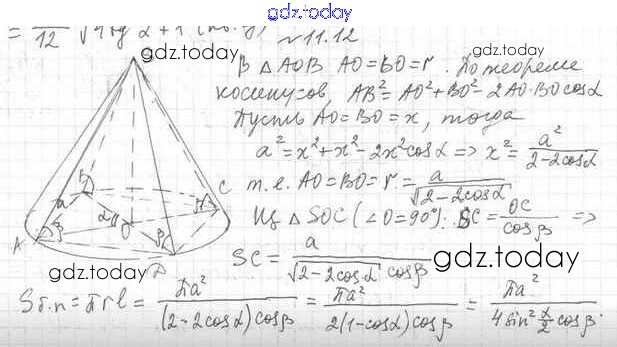 gdz.today
= /12 √4tg²α+1 (кв.ед) №11.12
gdz.today gdz.today
В △AOB AO=BO=r. По теореме
косинусов, AB²=AO²+BO²-2AO·BOcosα
Пусть AO=BO=x, тогда
a²=x²+x²-2x²cosα => x²=a²/(2-2cosα)
т.е. AO=BO=r=a/√(2-2cosα)
Из △SOC (∠O=90°): SC=OC/cosβ =>
SC=a/(√(2-2cosα) cosβ)
gdz.today gdz.today
Sб.п=πrl=πa²/((2-2cosα)cosβ)=πa²/(2(1-cosα)cosβ)=πa²/(4sin²α/2 cosβ).
S
B
a
C
α
O
A
β
β
β
D